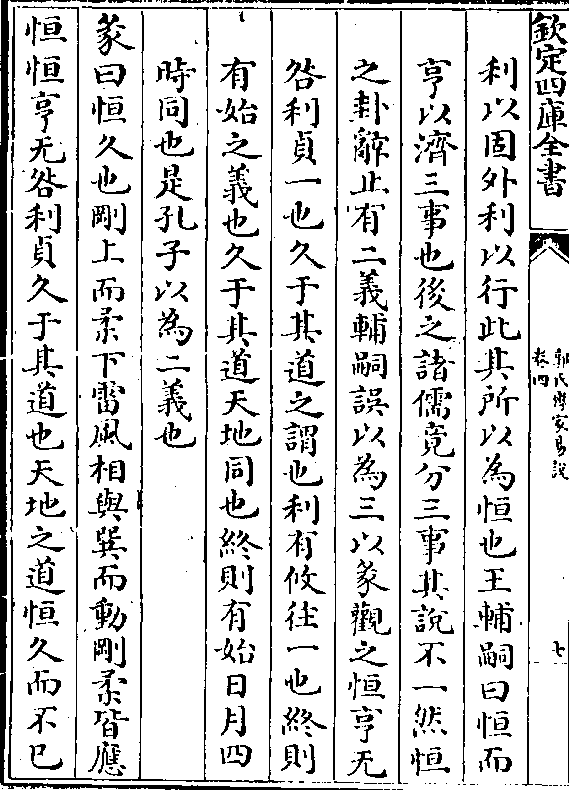 欽定四庫全書
郭氏傳家易說
卷四
七
利以固外利以行此其所以為恒也王輔嗣曰恒而
亨以濟三事也後之諸儒竟分三事其說不一然恒
之卦辭止有二義輔嗣誤以為三以彖觀之恒亨无
咎利貞一也久于其道之謂也利有攸往一也終則
有始之義也久于其道天地同也終則有始日月四
時同也是孔子以為二義也
彖曰恒久也剛上而柔下雷風相與巽而動剛柔皆應
恒恒亨无咎利貞久于其道也天地之道恒久而不已